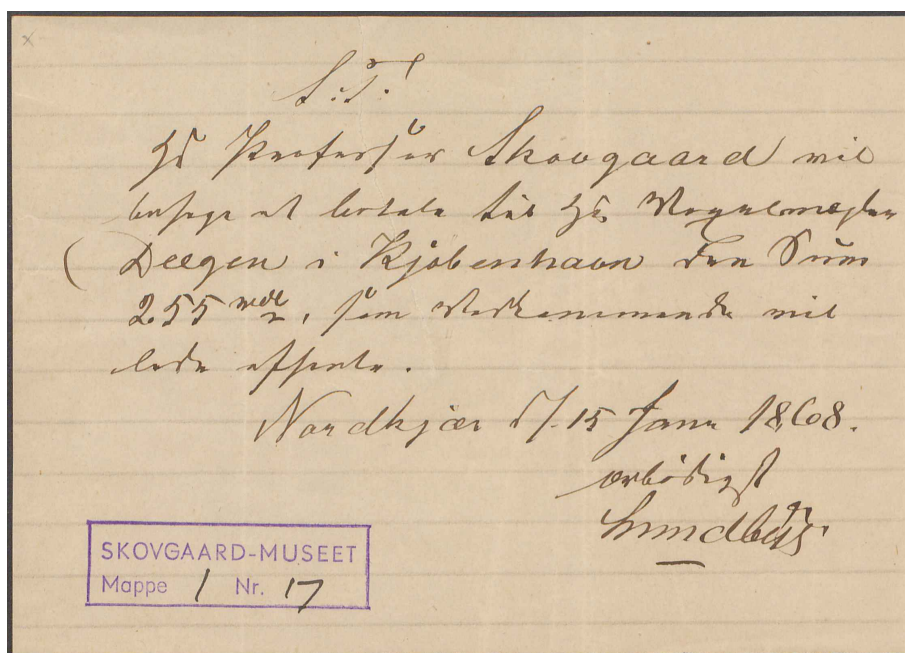 S. T.!
Hr Professor Skovgaard vil
behage at betale til Hr. Vexelmægler
Deegen i Kjöbenhavn den Sum
255 rdl, som Vedkommende vil
lade afhente.
Nordkjær d/. 15 Janr 1868.
ærbödigst
Lundbye.
SKOVGAARD-MUSEET
Mappe 1 Nr. 17